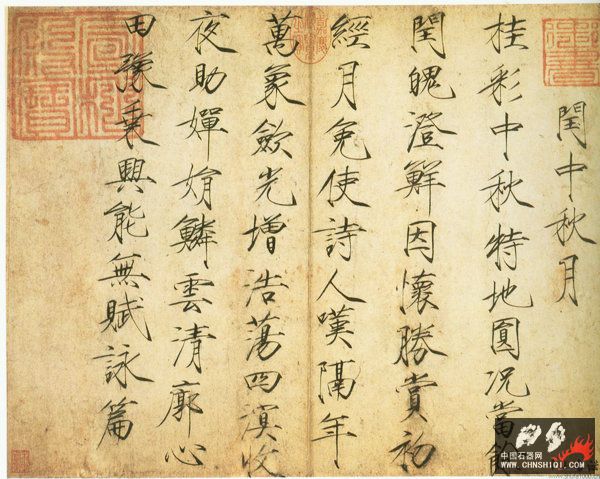 閏中秋月
桂彩中秋特地圓况當餘
閏魄澄鮮因懷勝賞初
經月免使詩人嘆隔年
萬象歛光增浩蕩四溟收
夜助嬋娟鱗雲清廓心
田豫乘興能無賦詠篇
中国石器网
WWW.CHNSHIQI.COM